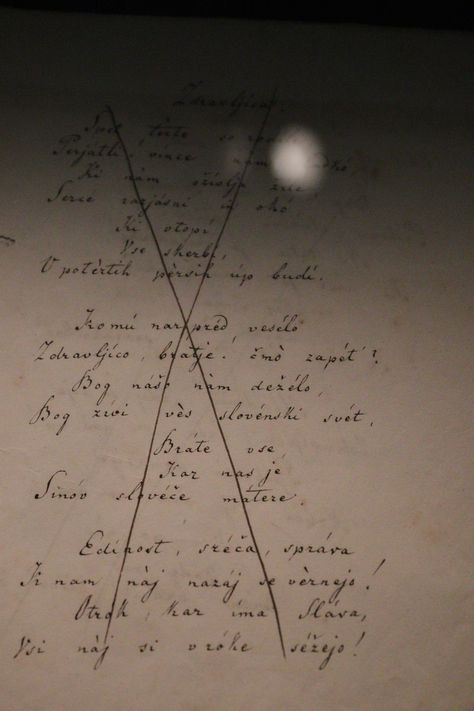 Zdravljica.
Spet tèrte so
Perjátli! vince nàm
Ki nam ožívlja žile
Serce razjásni in okó
Ki otopí
Vse skerbí,
V potèrtih pèrsih úp budí.
Komú narpred vesélo
Zdravljíco, bratje! čmò zapét'?
Bog nášo nàm deželo,
Bog živi vès slovénski svét,
Bráte vse
Kar nas je
Sinóv slovéče mátere.
Edinost, sréča, správa
K' nam nàj nazáj se vèrnejo!
Otrók, kar ima Sláva,
Vsi nàj si v róke séžejo!